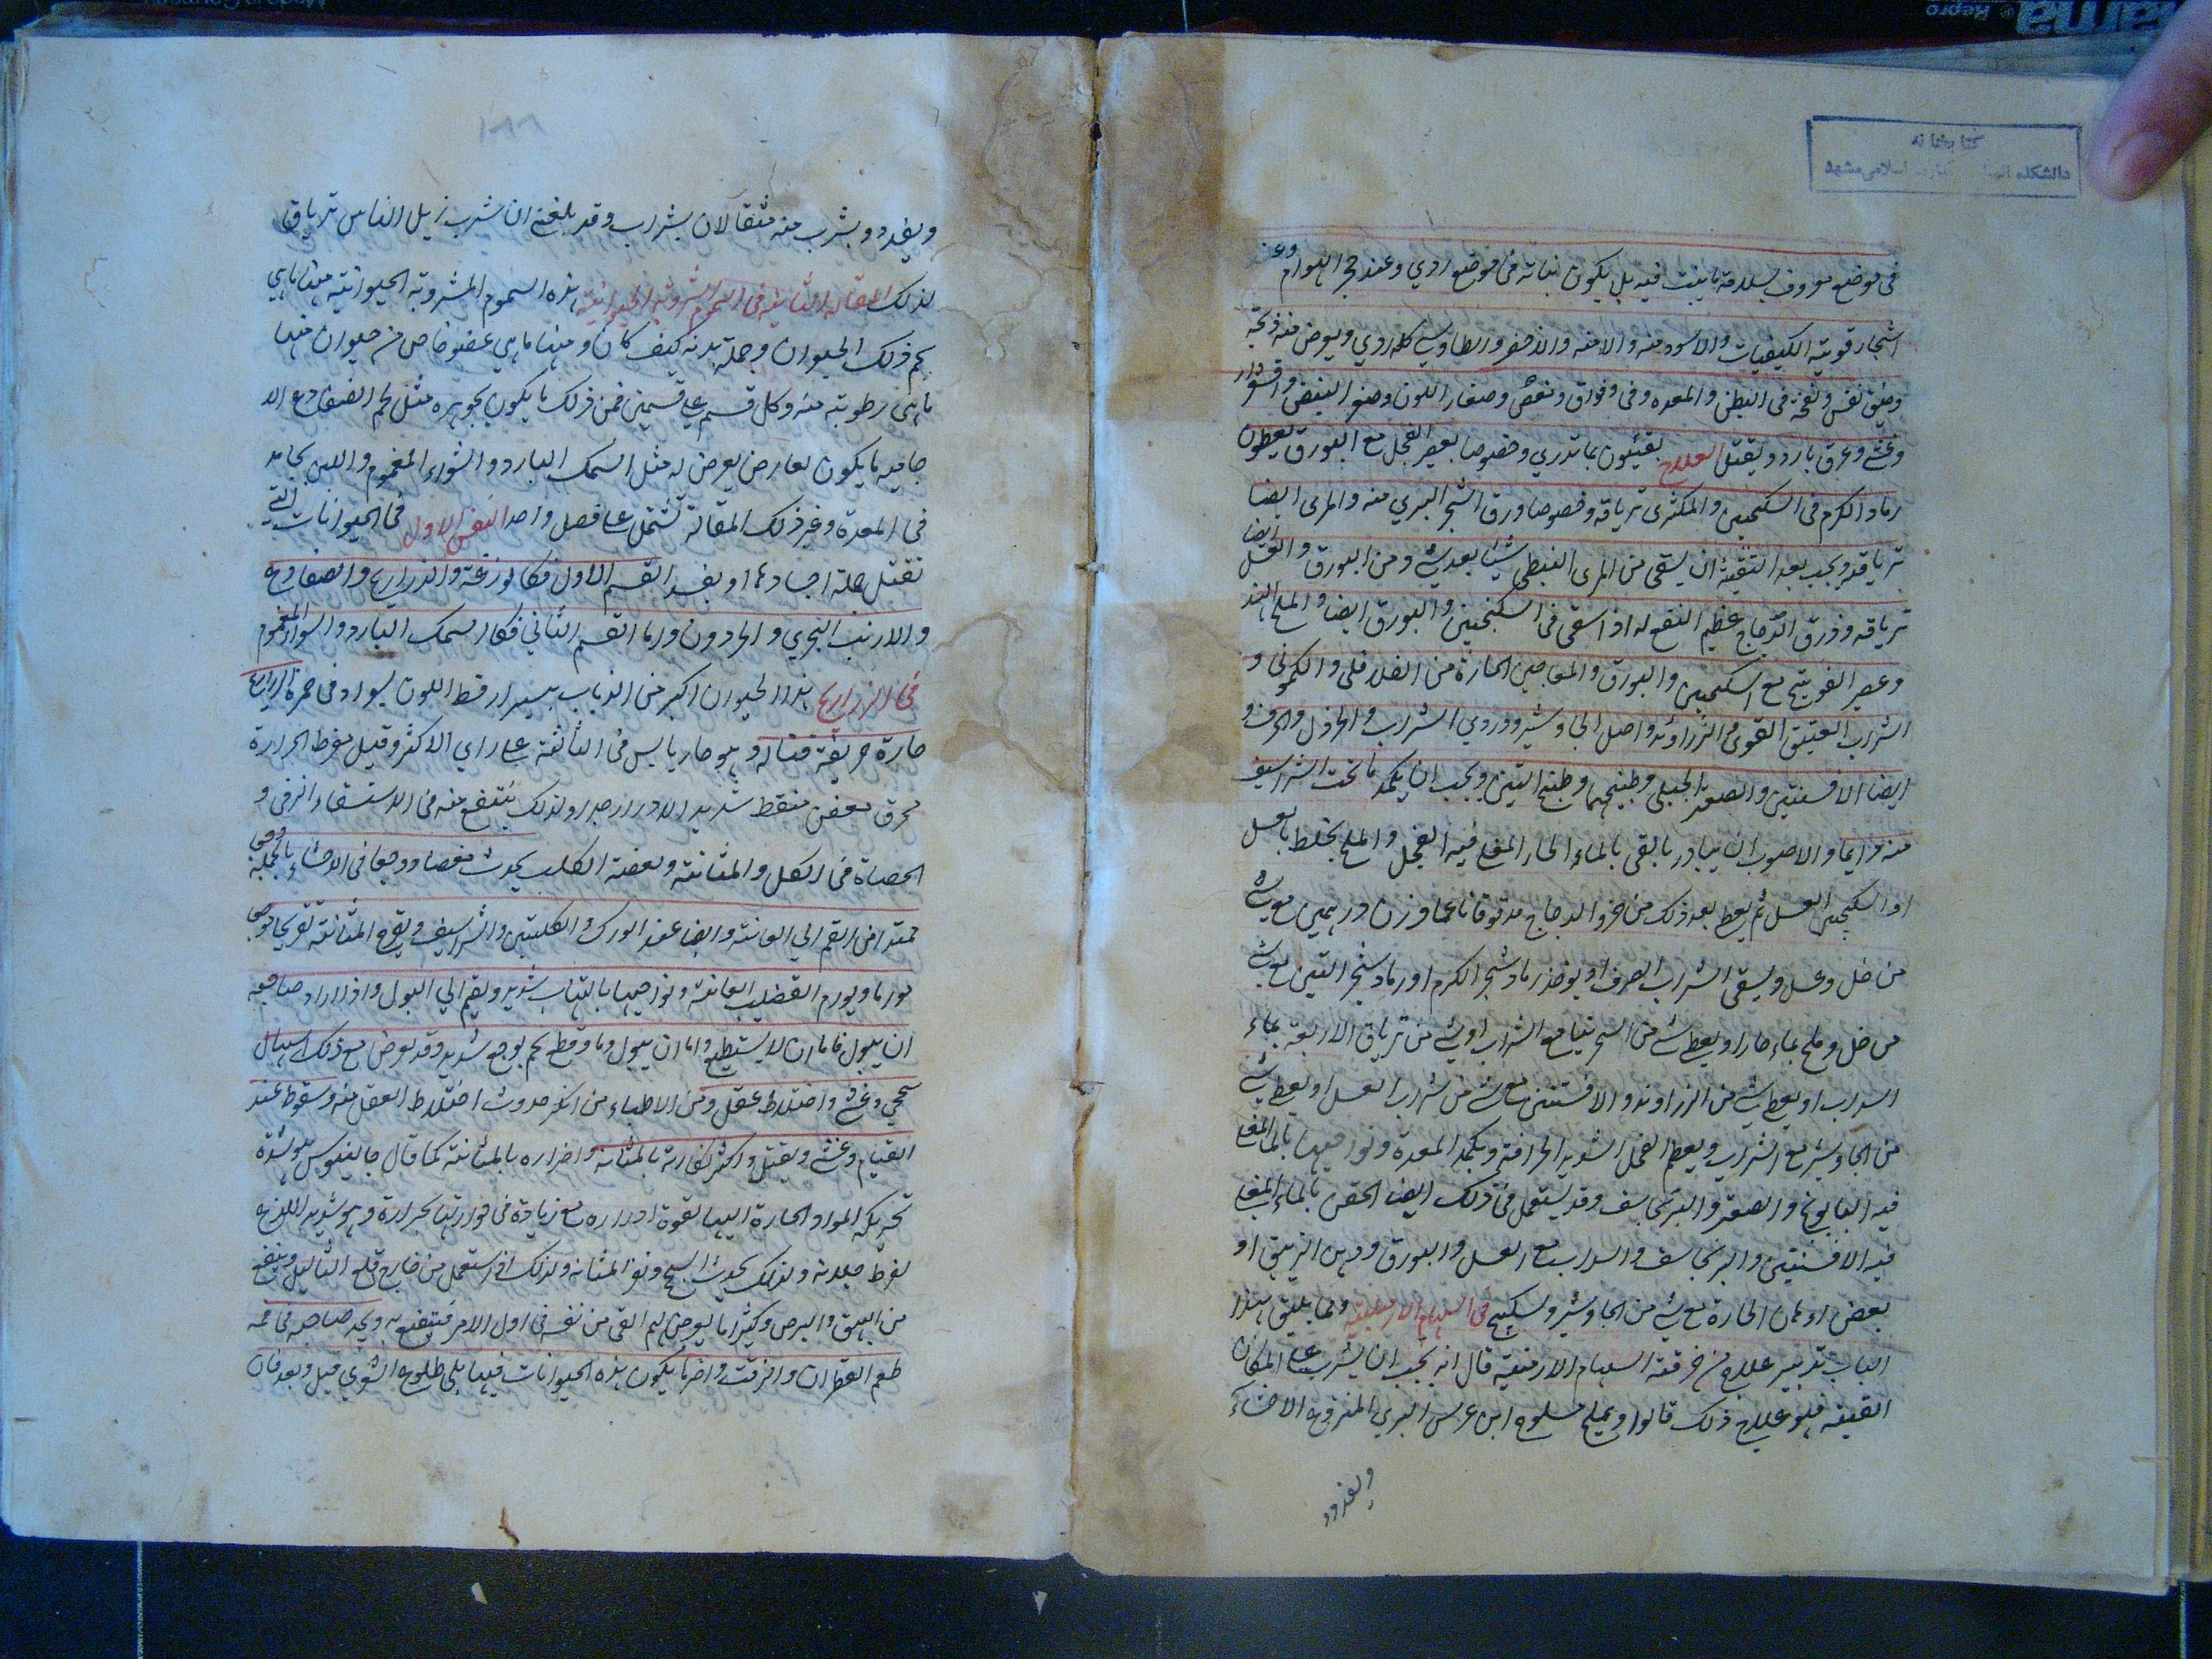 في موضع معروف بسلامة ما ينبت فيه بل يكون نباته في موضع ردي وعند جحر الهوام وعند
اشجار قوية الكيفيات والاسود منه والاخضر والطاوسي كله ردي ويعرض منه ذبحة
وضيق نفس ونفخة في البطن والمعده وفي فواق ومغص وصفار اللون وصغر النبض واقشعرار
وغشي وعرق بارد ويقتل العلاج يقيئون بما تدري وخصوصا بعصير الفجل مع البورق يعطون
رماد الكرم في السكنجبين والكمثرى ترياقه وخصوصا ورق الشجر البري منه والمري ايضا
ترياقه ويجب بعد التنقية ان يسقى من المري النبطي شيئا بعد شي ومن البورق والعسل ايضا
ترياقه وذرق الدجاج عظيم النفع له اذا سقي في السكنجبين والبورق ايضا والملح الهند
وعصير الفوتنج مع السكنجبين والبورق والمعاجين الحارة من الفلافلي والكموني و
الشراب العتيق القوي والزراوند واصل الجاوشير ودردي الشراب والخردل والحرف و
ايضا الافسنتين والصعتر الجبلي وطبيخهما وطبيخ التين ويجب ان يكمد ما تحت الشراسيف
منه دايما والاصوب ان يبادر بالقي بالماء الحار المغلي فيه الفجل والملح يخلط بالعسل
او السكنجبين العسل ثم يعطى بعد ذلك من خرو الدجاج مدقوقا ناعما وزن درهمين مع شي
من خل وعسل ويسقى الشراب الصرف او يوخذ رماد شجر الكرم او رماد شجر التين مع شي
من خل وملح بماء حار او يعطى شي من السجزنيا مع الشراب او شي من ترياق الاربعة بماء
السداب او يعطى شي من الزراوند والافسنتين مع شي من شراب العسل او يعطى شي
من الجاوشير مع الشراب ويعطى الفجل الشديد الحرافة ويكمد المعدة ونواحيها بالماء المغلي
فيه البابونج والصعتر والبرنجاسف وقد يستعمل في ذلك ايضا الحقن بالماء المغلي
فيه الافسنتين والبرنجاسف والسداب مع العسل والبورق ودهن الزنبق او
بعض الادهان الحارة مع شي من الجاوشير وسكبينج في السهام الارمينية ومما يليق بهذا
الباب تدبير علاج من خرقته السهام الارمنية قال انه يجب ان يشرب على المكان
القنة فهو علاج ذلك قالوا ويملح مسلوخ ابن عرس البري المنزوع الاحشاء
ويغدد
ويغدد ويشرب منه مثقالان بشراب وقد بلغني ان شرب زبل الناس ترياق
لذلك المقالة الثانية في السموم المشروبة الحيوانية هذه السموم المشروبة الحيوانية منها ما هي
لحم ذلك الحيوان وجملة بدنه كيف كان ومنها ما هي عضو خاص من حيوان منها
ما هي رطوبة منه وكل قسم على قسمين فمن ذلك ما يكون بجوهره مثل لحم الضفادع الا
جامية ما يكون لعارض يعرض له مثل السمك البارد والشواء المغموم واللبن بجامد
في المعدة وغير ذلك المقالة تشتمل على فصل واحد الفن الاول في الحيوانات التي
تقتل جملة اجسادها او يفسد القسم الاول فكالوزغة والذراريح والضفادع
والارنب البحري والحردون واما القسم الثاني فكالسمك البارد والشواء المغموم
في الذراريح هذا الحيوان اكبر من الذباب بيسير ارقط اللون بسواد في حمرة الذراريح
حارة حريفة قتالة وهو حار يابس في الثالثة على راي الاكثر وقيل مفرط الحرارة
محرق معفن منقط شديد الادرار جدا ولذلك ينتفع منه في الاستسقاء الزقي و
الحصاة في الكلى والمثانة ولعضة الكلب يحدث مغصا ووجعا في الاحشاء بالجملة وجع
ممتد من الفم الي العانة وايضا عند الورك والكليتين والشراسيف ويقرح المثانة تقريحا موجعا
مورما ويورم القضيب العانة ونواحيها بالتهاب شديد ويقيم الي البول واذا اراد صاحبه
ان يبول فاما ان لا يستطيع واما ان يبول دما وقطع لحم بوجع شديد وقد يعرض مع ذلك اسهال
سحجي وغشي واختلاط عقل ومن الاطباء من انكر حدوث اختلاط العقل منه وسقوط عند
القيام وغشي ويقتل واكثر نكايته بالمثانة واضراره بالمثانة كما قال جالينوس هو شدة
تحريكه المواد الحارة اليها لقوة ادراره مع زيادة في حرارتها بحرارة وهو شديد اللذع
لفرط جلاءه ولذلك يحدث السحج ونزف المثانة ولذلك اذا استعمل من خارج قلع الثاليل وينفع
من البهق والبرص وكثيرا ما يعرض لهم القي من نفسه في اول الامر فينتفع به ويجد صاحبه في فمه
طعم القطران والزفت واضر ما يكون هذه الحيوانات فيما يلي طلوع الشعري قبل وبعد فان